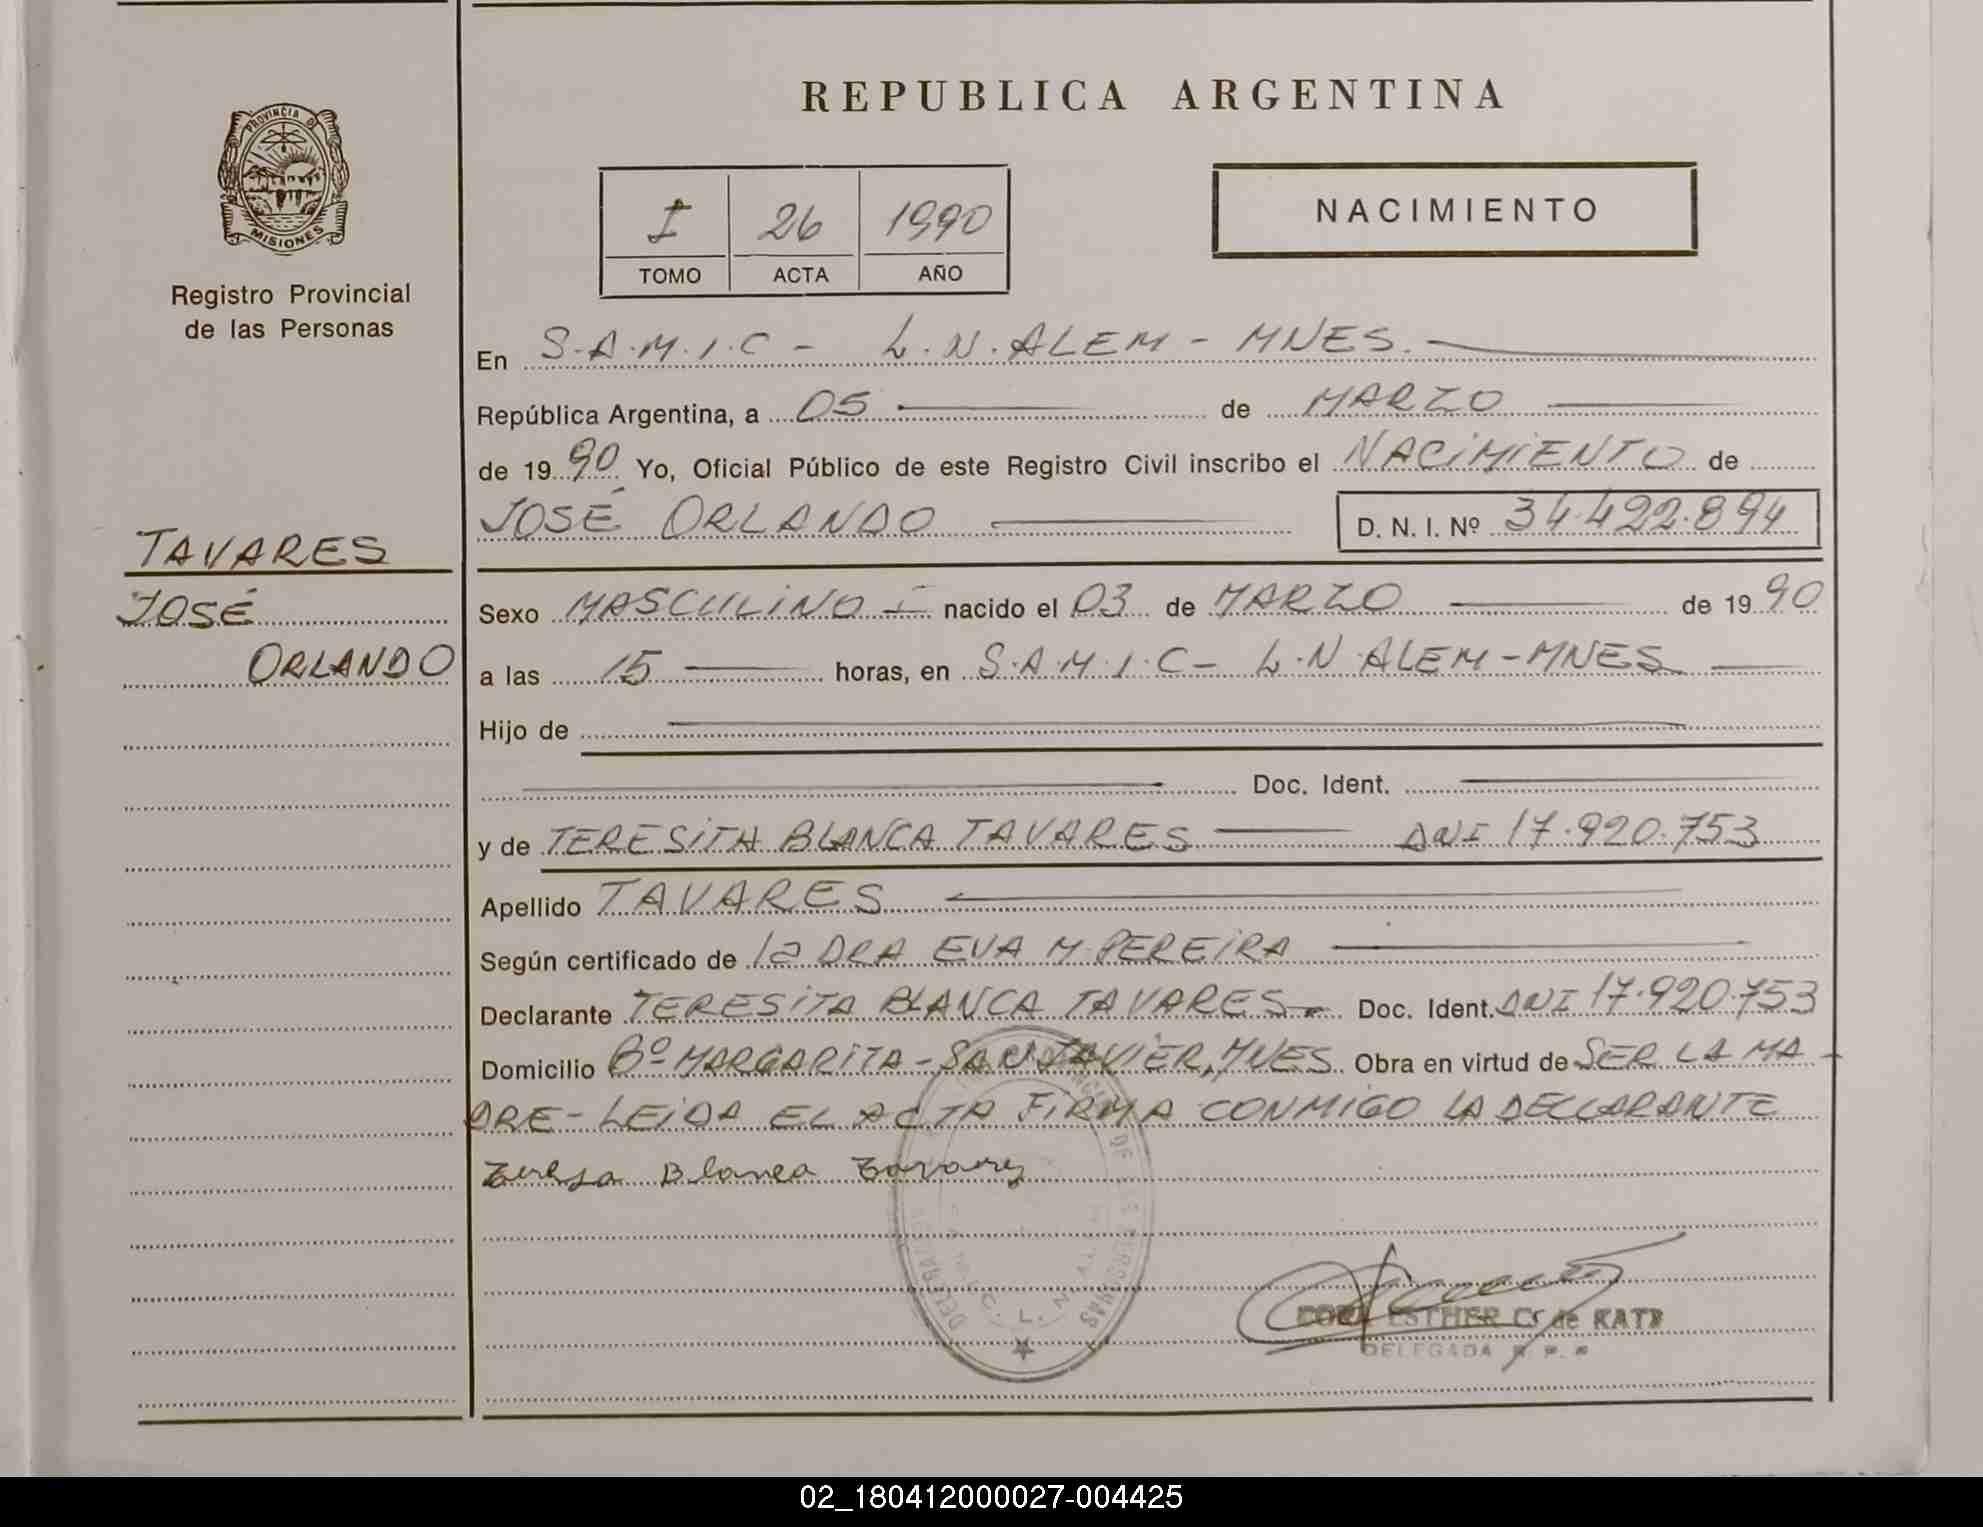 REPUBLICA ARGENTINA
PROVINCIA DE
MISIONES
Registro Provincial
de las Personas
I 26 1990
TOMO ACTA AÑO
NACIMIENTO
En S.A.M.I.C - L.N. ALEM - MNES.
República Argentina, a 05 de MARZO
de 1990 Yo, Oficial Público de este Registro Civil inscribo el NACIMIENTO de
JOSÉ ORLANDO D. N. I. Nº 34.422.894
TAVARES
JOSÉ
ORLANDO
Sexo MASCULINO nacido el 03 de MARZO de 1990
a las 15 horas, en S.A.M.I.C - L.N ALEM - MNES
Hijo de
Doc. Ident.
y de TERESITA BLANCA TAVARES DNI 17.920.753
Apellido TAVARES
Según certificado de la DRA EVA M. PEREIRA
Declarante TERESITA BLANCA TAVARES Doc. Ident. DNI 17.920.753
Domicilio Bº MARGARITA - SAN JAVIER, MNES. Obra en virtud de SER LA MA
DRE - LEIDA EL ACTA FIRMA CONMIGO LA DECLARANTE
Blanca
ESTHER C. de KATZ
DELEGADA R. P. P
02_180412000027-004425